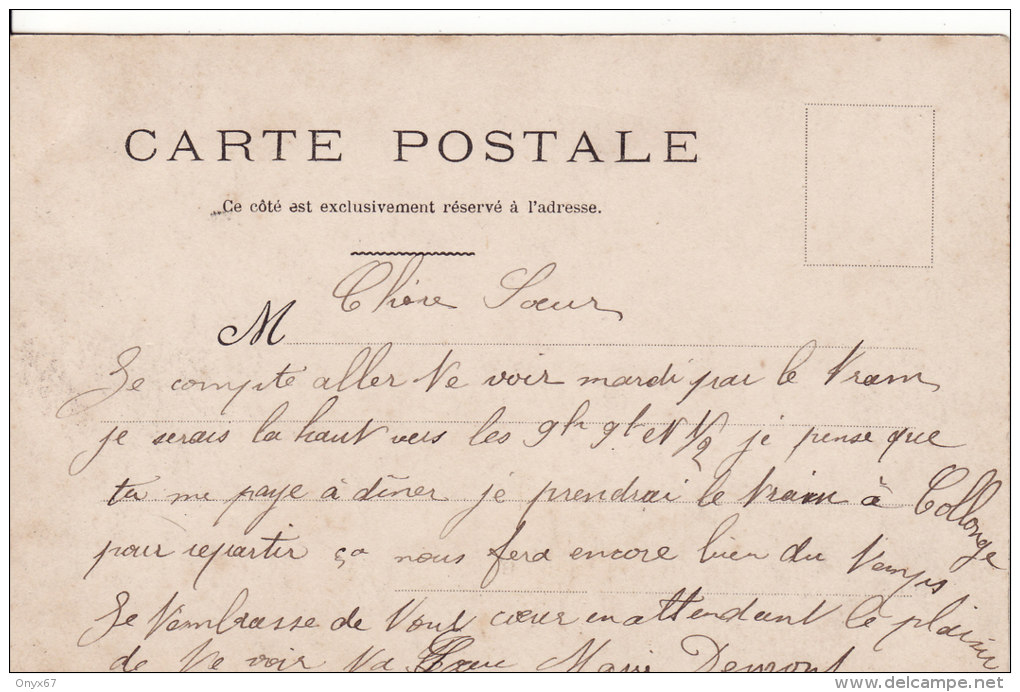 CARTE POSTALE
Ce côté est exclusivement réservé à l'adresse.
M
Chère Sœur
Je compte aller te voir mardi par le tram
je serais la haut vers les 9h 9h et 1/2 je pense que
tu me paye à dîner je prendrai le train à Collonge
pour repartir ça nous fera encore bien du temps
Je t'embrasse de tout cœur en attendant le plaisir
de te voir ta Sœur Marie
Onyx67
delcampe.net